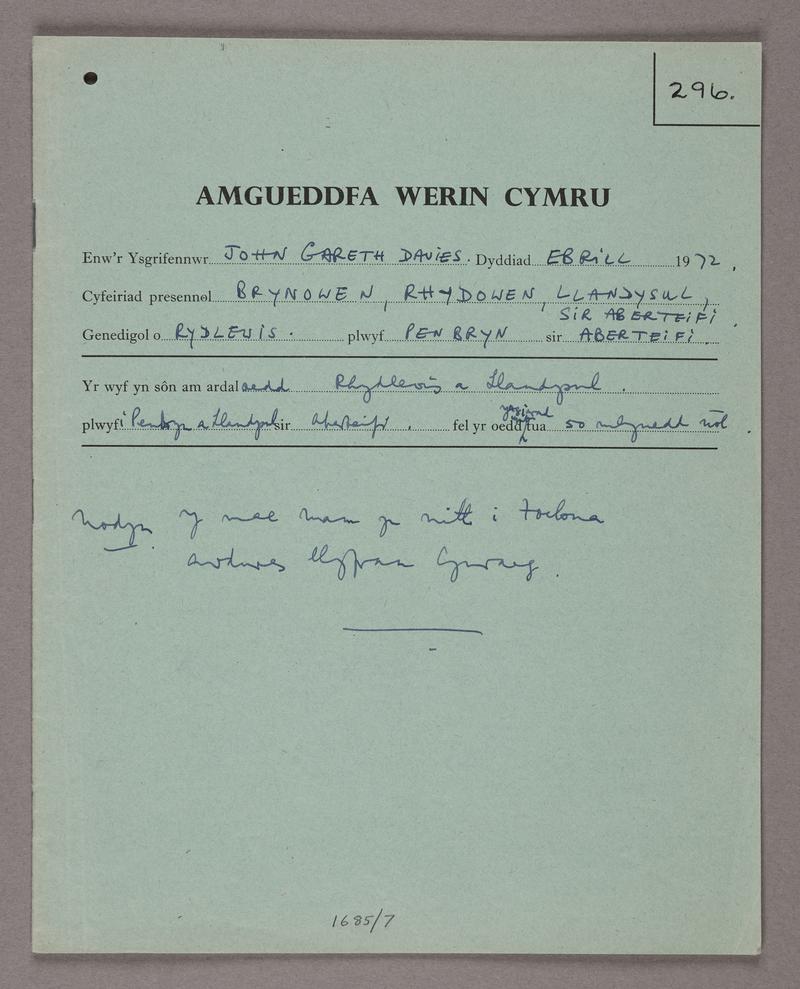 296.
AMGUEDDFA WERIN CYMRU
Enw'r Ysgrifennwr JOHN GARETH DAVIES. Dyddiad EBRILL 1972.
Cyfeiriad presennol BRYNOWEN, RHYDOWEN, LLANDYSUL,
SIR ABERTEIFI.
Genedigol o RYDLEWIS. plwyf PENBRYN sir ABERTEIFI.
Yr wyf yn sôn am ardaloedd Rhydlewis a Llandysul.
plwyfi Penbryn a Llandysul sir Aberteifi. fel yr oedd tua 50 mlynedd nôl.
Nodyn Y mae mam yn nith i Moelona
awdures llyfrau Cymraeg.
1685/7